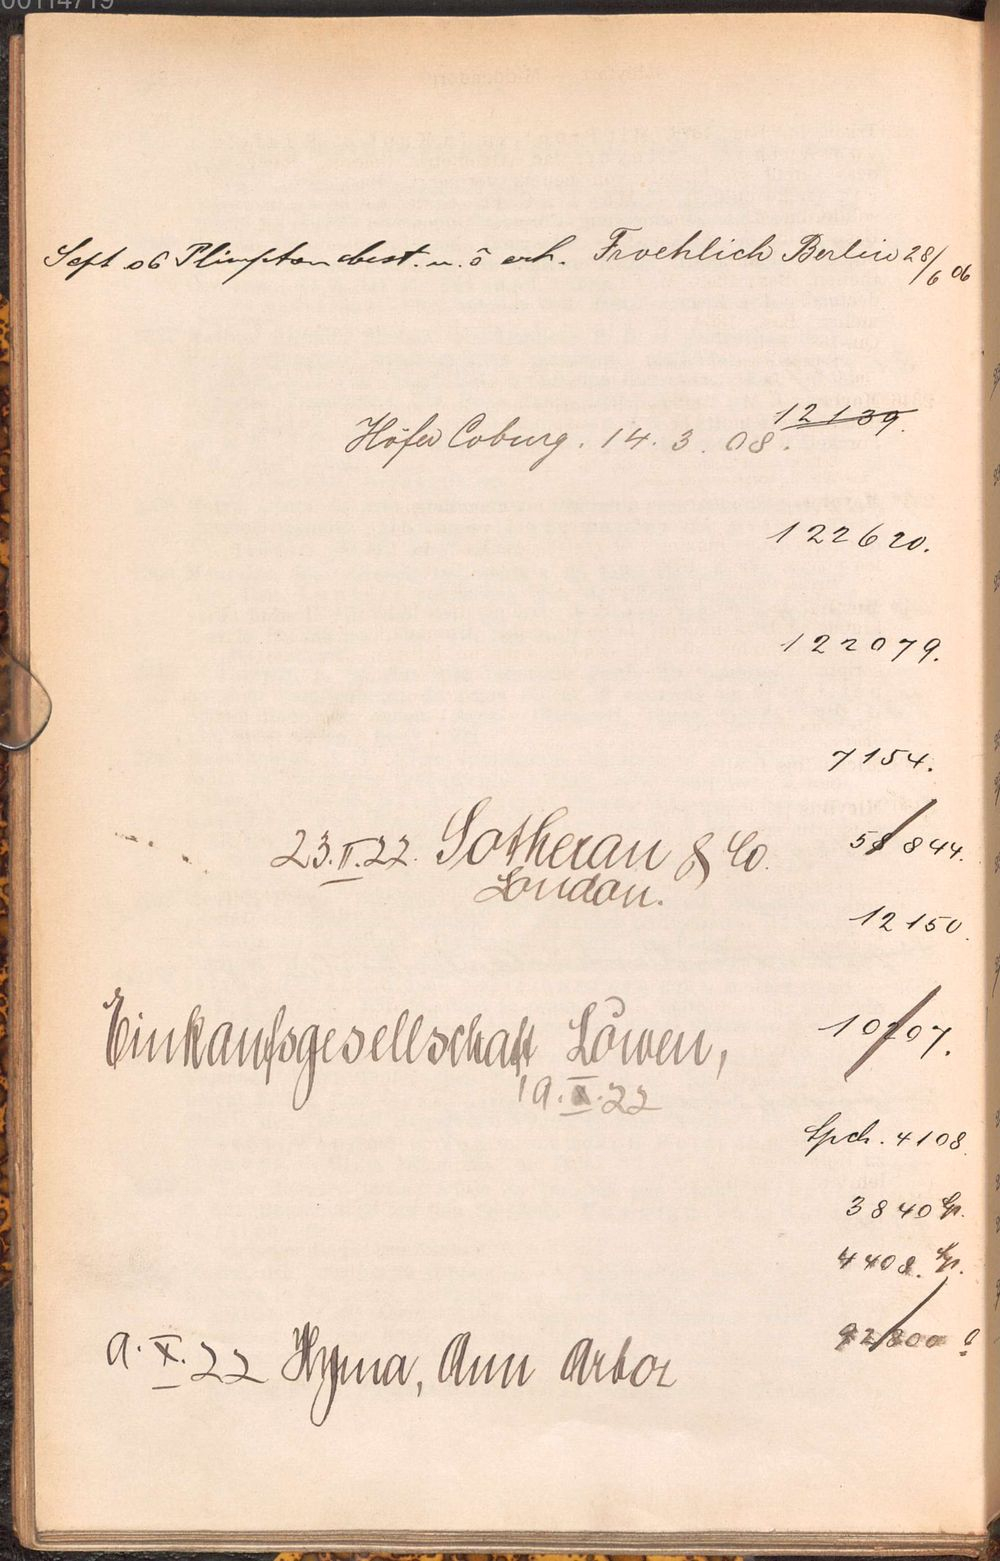 00114719
Sept 06 Plimpton best. u. ō erh. Froehlich Berlin 28/6 06
12139.
Höfer Coburg. 14. 3. 08.
122620.
122079.
7154.
23.II.22. Sotheran & Co. 58844.
London.
12150.
Einkaufsgesellschaft Löwen, 10707.
19.X.22
Spch. 4108.
3840 Sp.
4408. Sp.
9.X.22 Hyma, Ann Arbor 92800?